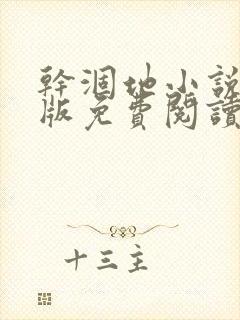 幹涸地小説
版免費閱讀
十三主